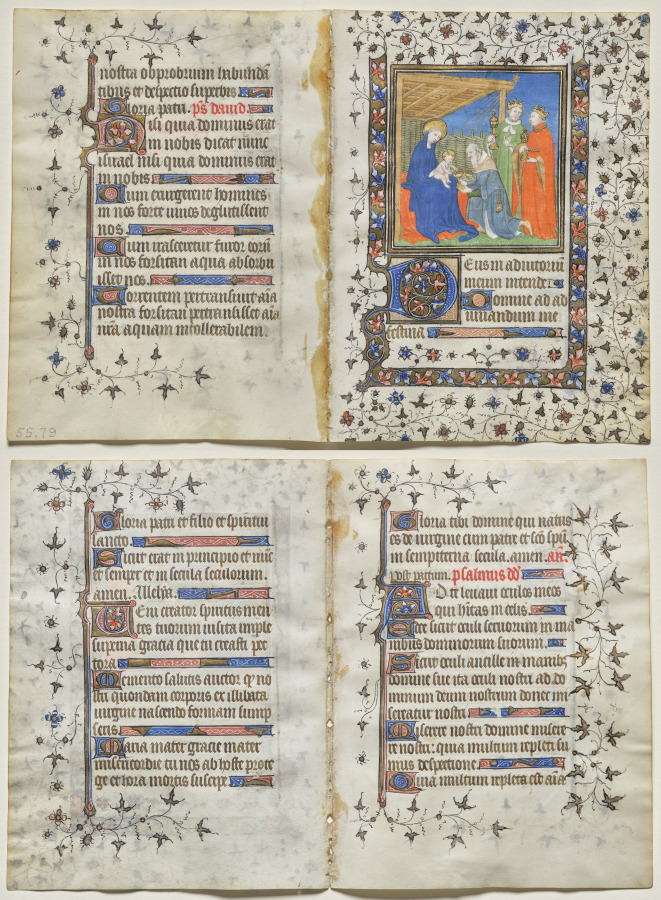 nostra obprobrium habundā
tibus et despectio superbis
Gloria patri. ps david.
Nisi quia dominus erat
in nobis dicat nunc
israel nisi quia dominus erat
in nobis
Cum exurgerent homines
in nos forte vivos deglutissent
nos
Cum irasceretur furor eorū
in nos forsitan aqua absorbu
isset nos
Torrentem pertransivit aīa
nostra forsitan pertransisset aīa
nr̄a aquam intollerabilem.
55.79
Deus in adiutoriū
meum intende
Domine ad ad
iuvandum me
festina
Gloria patri et filio et spiritui
sancto
Sicut erat in principio et nūc
et semper et in secula seculorum.
amen. Allelya.
Veni creator spiritus men
tes tuorum visita imple
superna gracia que tu creasti pec
tora
Memento salutis auctor q̄ no
stri quondam corporis ex illibata
virgine nascendo formam sump
seris
Maria mater gracie mater
misericordie tu nos ab hoste prote
ge et hora mortis suscipe
Gloria tibi domine qui natus
es de virgine cum patre et scō spū
in sempiterna secula. amen. an.
post partum. psalmus dd
Ad te levavi oculos meos
qui hītas in celis.
Ecce sicut oculi servorum in ma
nibus dominorum suorum.
Sicut oculi ancille in manib;
domine sue ita oculi nostri ad do
minum deum nostrum donec mi
sereatur nostri
Miserere nostri domine misere
re nostri: quia multum repleti su
mus despectione
Quia multum repleta est aīa